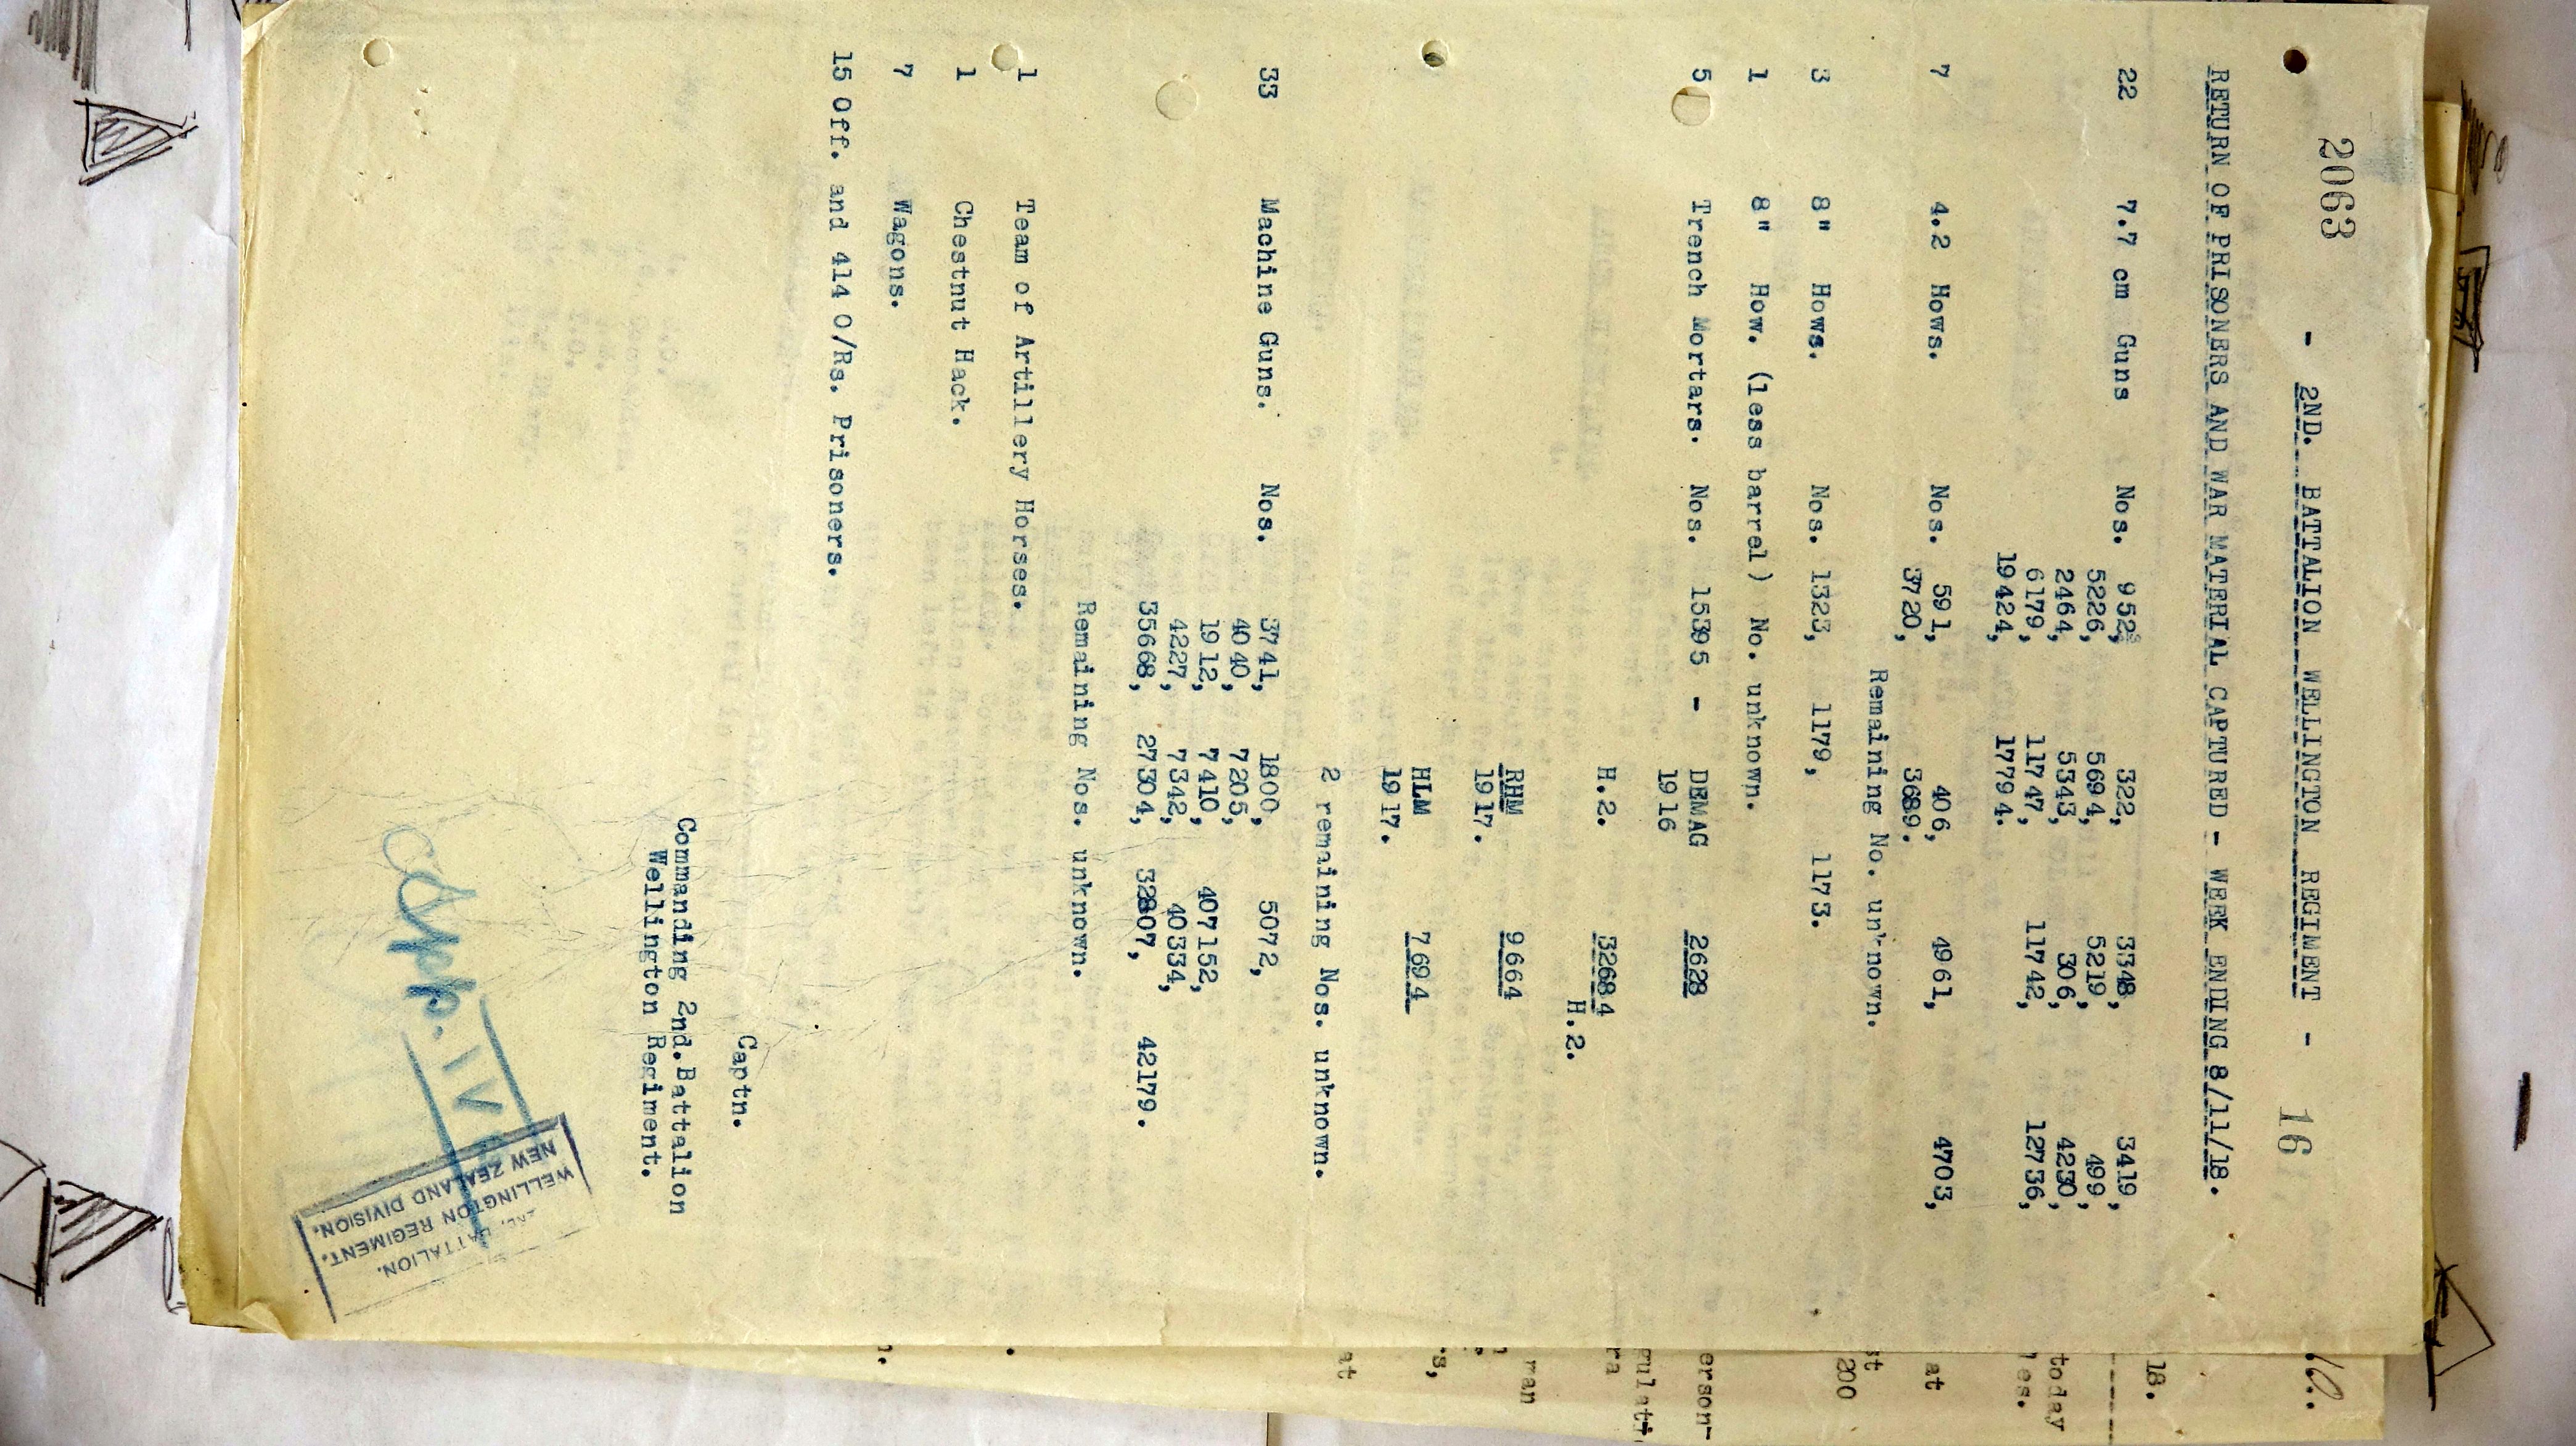 2063
- 2ND. BATTALION WELLINGTON REGIMENT - 16
RETURN OF PRISONERS AND WAR MATERIAL CAPTURED - WEEK ENDING 8/11/18.
22 7.7 cm Guns Nos. 952, 322, 3348, 3419,
5226, 5694, 5219, 499,
2464, 5343, 306, 4230,
6179, 11747, 11742, 12736,
19424, 17794.
7 4.2 Hows. Nos. 591, 406, 4961, 4703,
3720, 3689.
Remaining No. unknown.
3 8" Hows. Nos. 1323, 1179, 1173.
1 8" How. (less barrel) No. unknown.
5 Trench Mortars. Nos. 15395 - DEMAG 2628
1916
H.2. 32684
H.2.
RHM 9664
1917.
HLM 7694
1917.
2 remaining Nos. unknown.
33 Machine Guns. Nos. 3741, 1800, 5072,
4040, 7205,
1912, 7410, 407152,
4227, 7342, 40334,
35668, 27304, 32807, 42179.
Remaining Nos. unknown.
1 Team of Artillery Horses.
1 Chestnut Hack.
7 Wagons.
15 Off. and 414 O/Rs. Prisoners.
Captn.
Commanding 2nd.Battalion
Wellington Regiment.
App. IV
BATTALION.
WELLINGTON REGIMENT.
NEW ZEALAND DIVISION.
18.
today
es.
at
st
200
erson-
ra
ran
s,
at